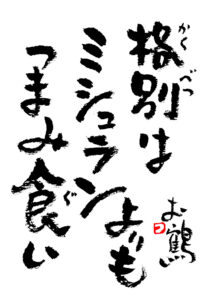 格別は
かくべつ
ミシュランよりも
つまみ食い
ぐ
お鶴